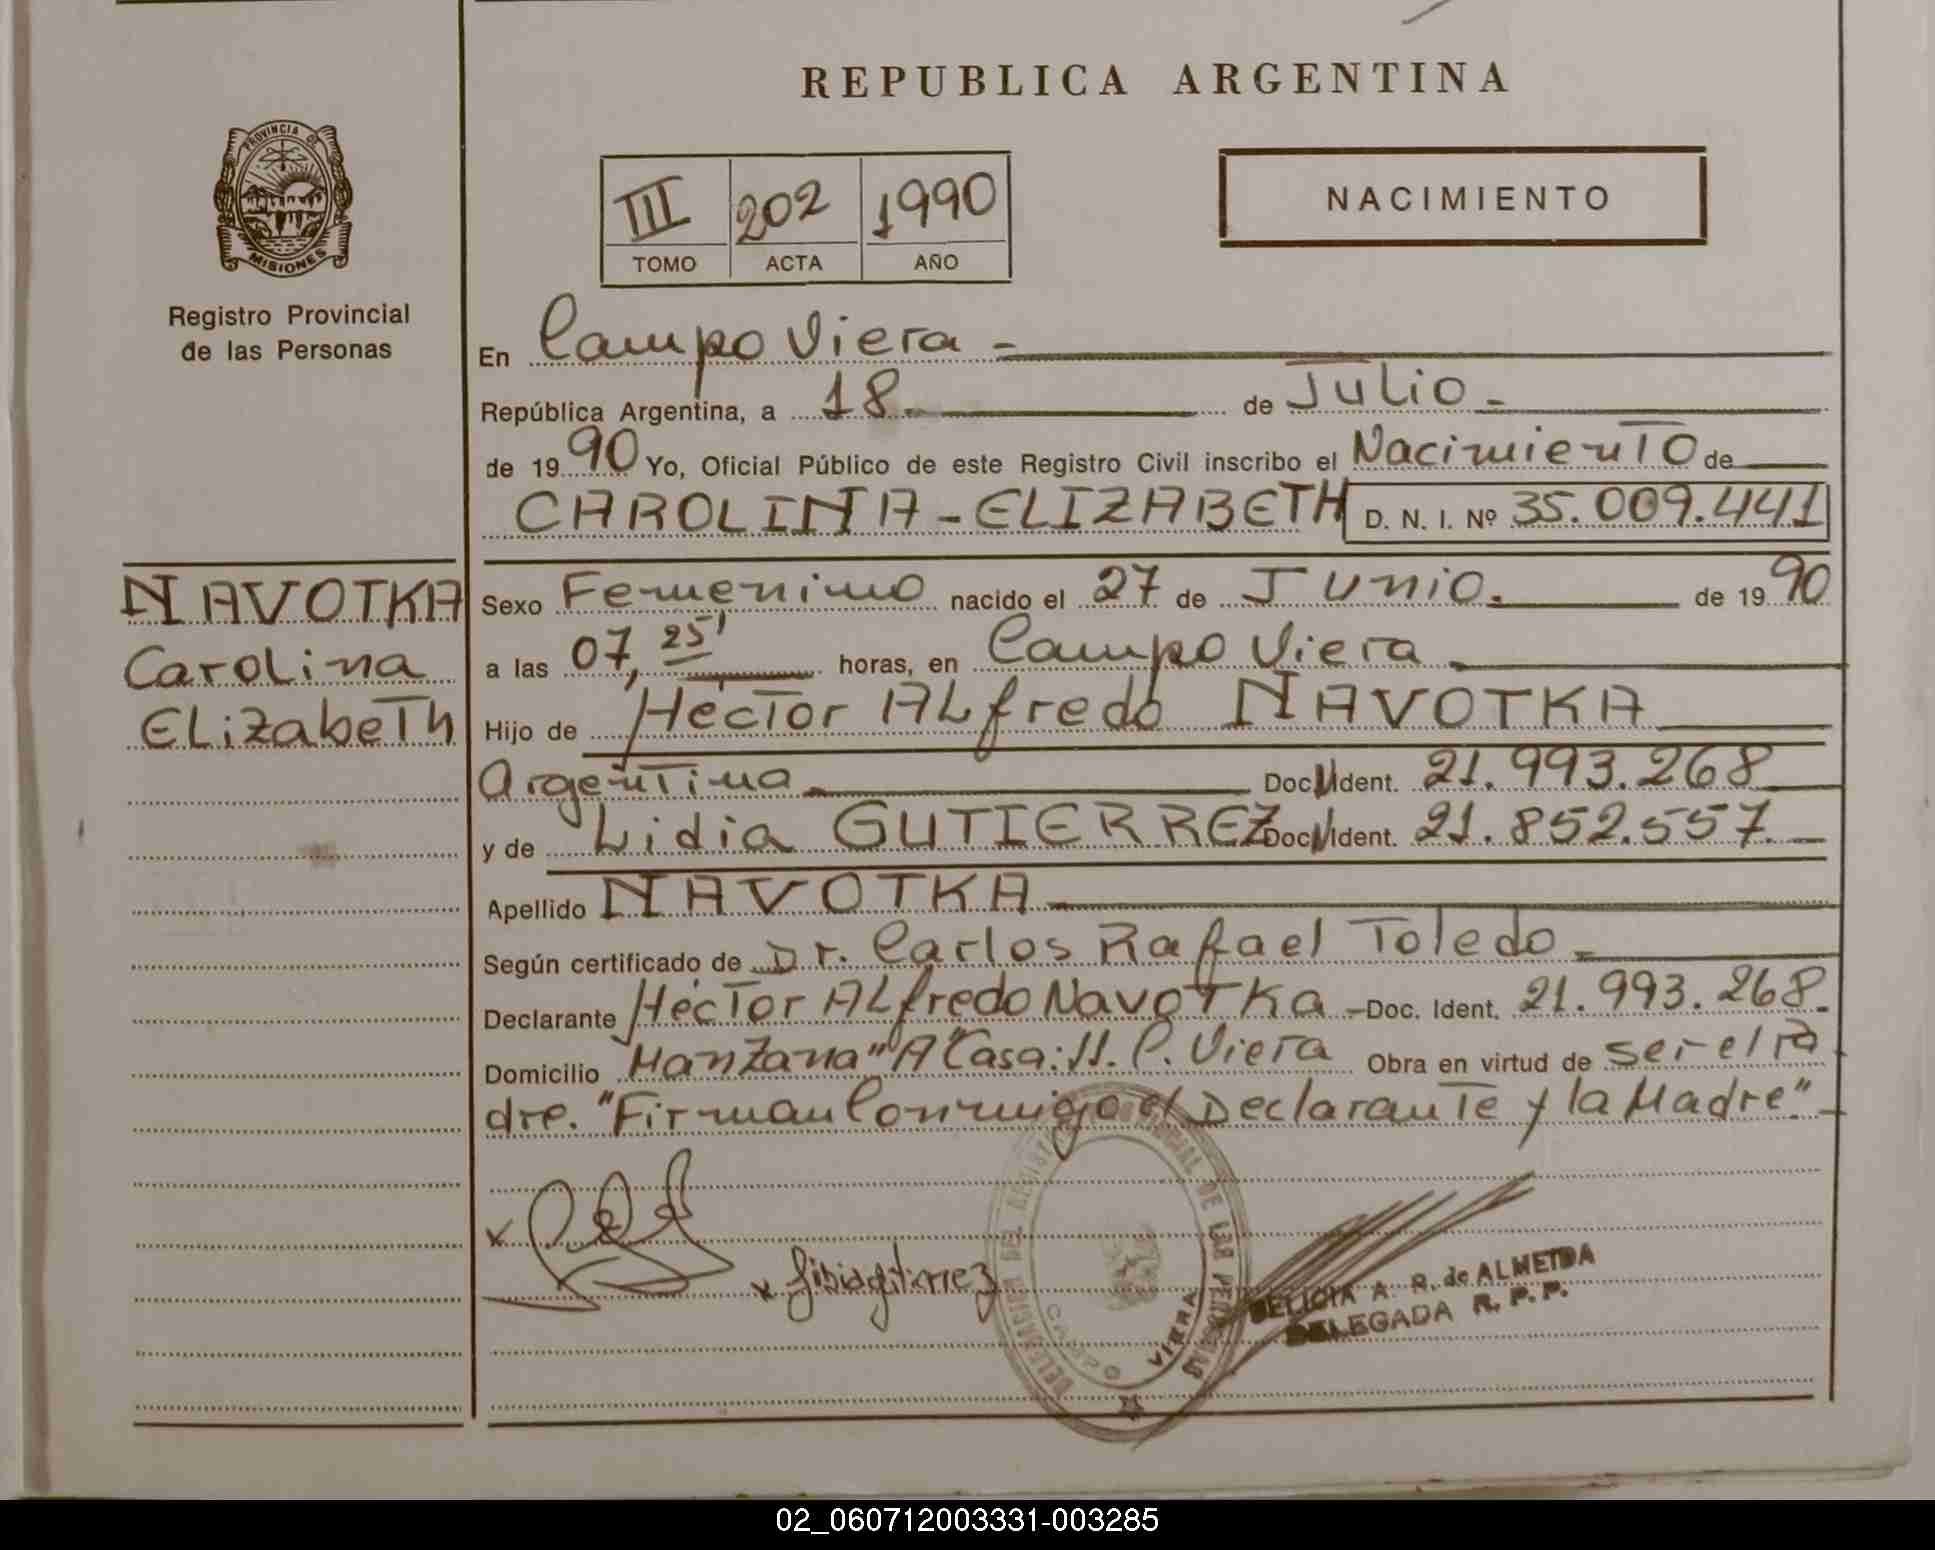 REPUBLICA ARGENTINA
PROVINCIA DE
MISIONES
Registro Provincial
de las Personas
III 202 1990
TOMO ACTA AÑO
NACIMIENTO
En Campo Viera -
República Argentina, a 18. de Julio -
de 1990 Yo, Oficial Público de este Registro Civil inscribo el Nacimiento de
CAROLINA - ELIZABETH D. N. I. Nº 35.009.441
NAVOTKA
Carolina
Elizabeth
Sexo Femenino nacido el 27 de Junio. de 1990
a las 07,25' horas, en Campo Viera
Hijo de Hector Alfredo NAVOTKA
Argentina Doc. Ident. 21.993.268
y de Lidia GUTIERREZ Doc. Ident. 21.852.557.
Apellido NAVOTKA
Según certificado de Dr. Carlos Rafael Toledo -
Declarante Hector Alfredo Navotka - Doc. Ident. 21.993.268.
Domicilio Manzana "A" Casa: 11. C. Viera Obra en virtud de ser el Pa
dre. "Firman Conmigo el Declarante y la Madre".-
x
x Lidia gutierrez
DELEGACION DEL REGISTRO PROVINCIAL DE LAS PERSONAS
CAMPO VIERA
DELICIA A. R. de ALMEIDA
DELEGADA R. P. P.
02_060712003331-003285